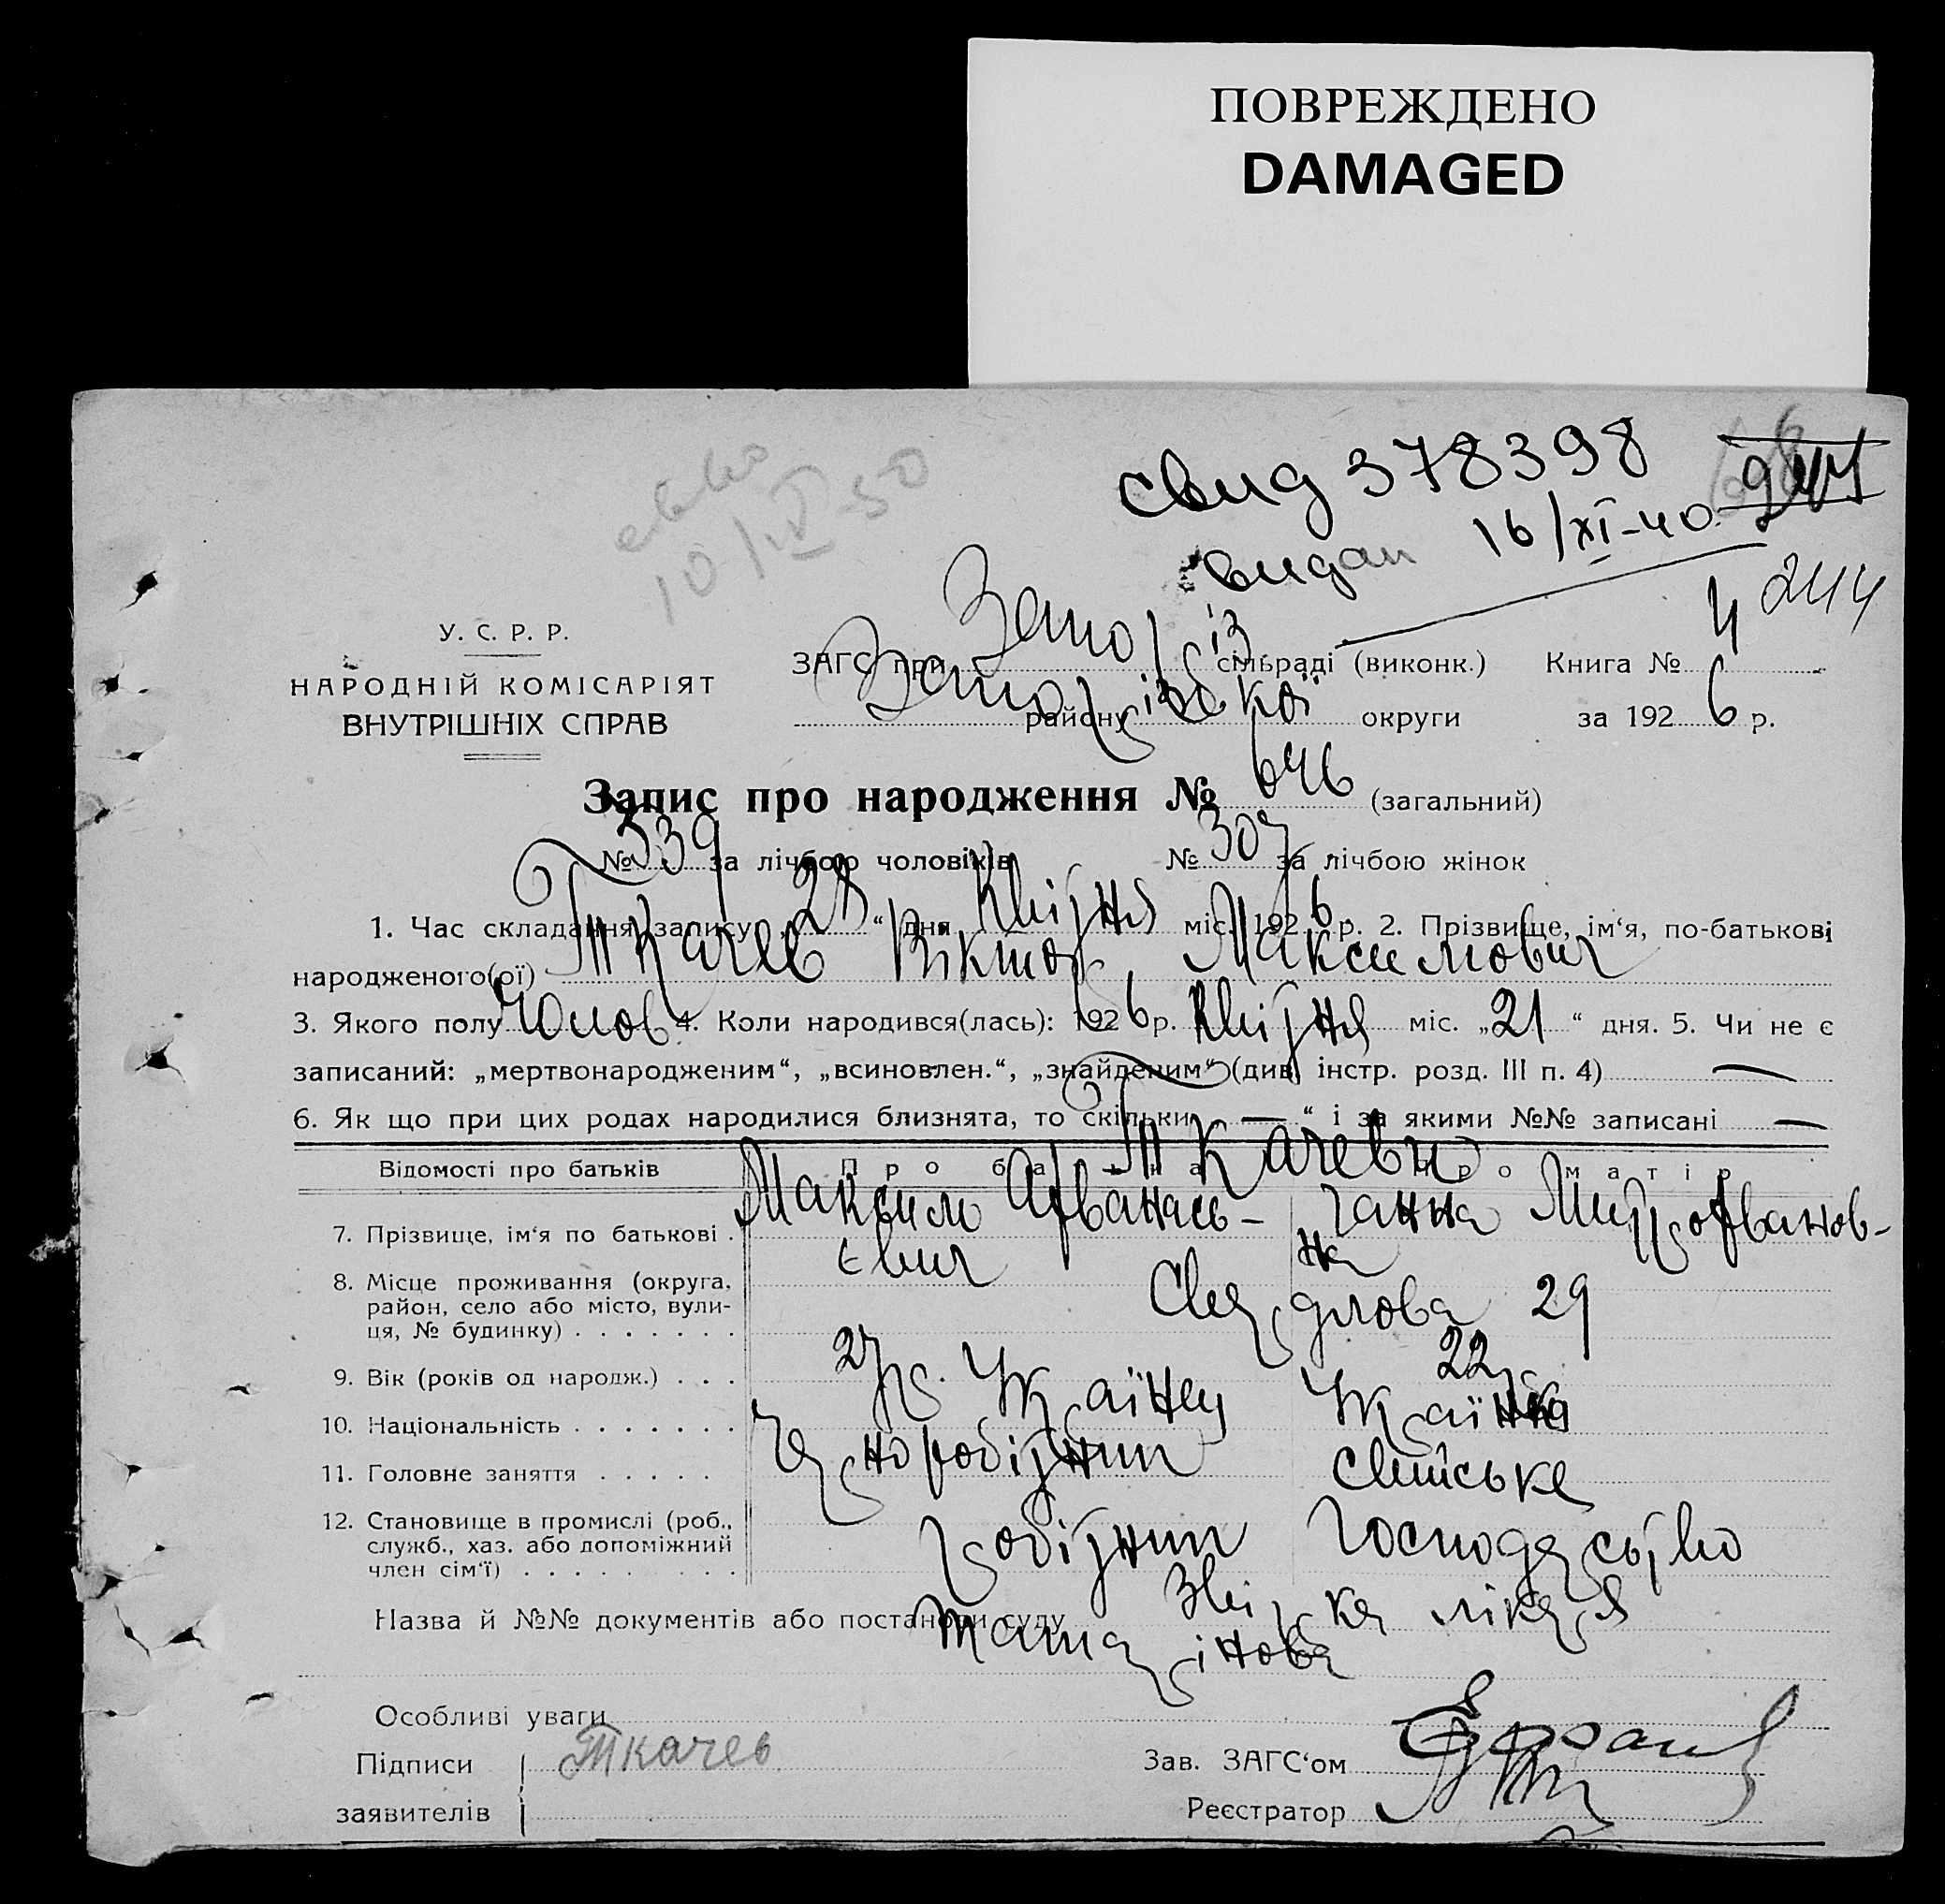 ПОВРЕЖДЕНО
DAMAGED
свид 378398
видан 16/XI-40
244
У. С. Р. Р.
НАРОДНІЙ КОМІСАРІЯТ
ВНУТРІШНІХ СПРАВ
ЗАГС при Запоріз сільраді (виконк.) Книга № 4
району Запорізької округи за 1926 р.
Запис про народження № 646 (загальний)
№ 339 за лічбою чоловіків № 307 за лічбою жінок
1. Час складання запису „28“ дня Квітня міс. 1926 р. 2. Прізвище, ім‘я, по-батькові
народженого(ої) Ткачев Віктор Максимович
3. Якого полу Чолов 4. Коли народився(лась): 1926 р. Квітня міс. „21“ дня. 5. Чи не є
записаний: „мертвонародженим“, „всиновлен.“, „знайденим“ (див. інстр. розд. III п. 4) —
6. Як що при цих родах народилися близнята, то скільки „—“ і за якими №№ записані —
Відомості про батьків Про батька Про матір
Ткачеви
7. Прізвище, ім‘я по батькові . Максим Афванась- Ганна Митрофванов-
євич на
8. Місце проживання (округа, район, село або місто, вули-ця, № будинку) . . . . . . . Свердлова 29
9. Вік (років од народж.) . . . 27 р. 22 р.
10. Національність . . . . . . . Українец Українка
11. Головне заняття . . . . . Чорноробітник сельське
12. Становище в промислі (роб., служб., хаз. або допоміжний член сім‘ї) . . . . . . . . . робітник господарство
Назва й №№ документів або постанови суду Звірка лікаря
Особливі уваги
Підписи заявителів Ткачев
Зав. ЗАГС‘ом
Реєстратор